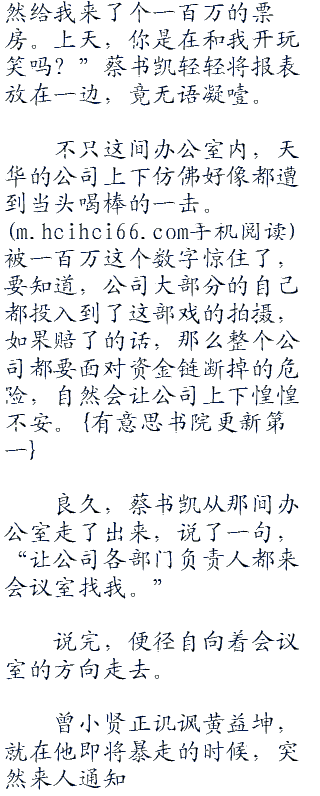 然给我来了个一百万的票
房。上天，你是在和我开玩
笑吗？”蔡书凯轻轻将报表
放在一边，竟无语凝噎。
不只这间办公室内，天
华的公司上下仿佛好像都遭
到当头喝棒的一击。
(m.hcihci66.com手机阅读)
被一百万这个数字惊住了，
要知道，公司大部分的自己
都投入到了这部戏的拍摄，
如果赔了的话，那么整个公
司都要面对资金链断掉的危
险，自然会让公司上下惶惶
不安。{有意思书院更新第
一}
良久，蔡书凯从那间办
公室走了出来，说了一句，
“让公司各部门负责人都来
会议室找我。”
说完，便径自向着会议
室的方向走去。
曾小贤正讥讽黄益坤，
就在他即将暴走的时候，突
然来人通知